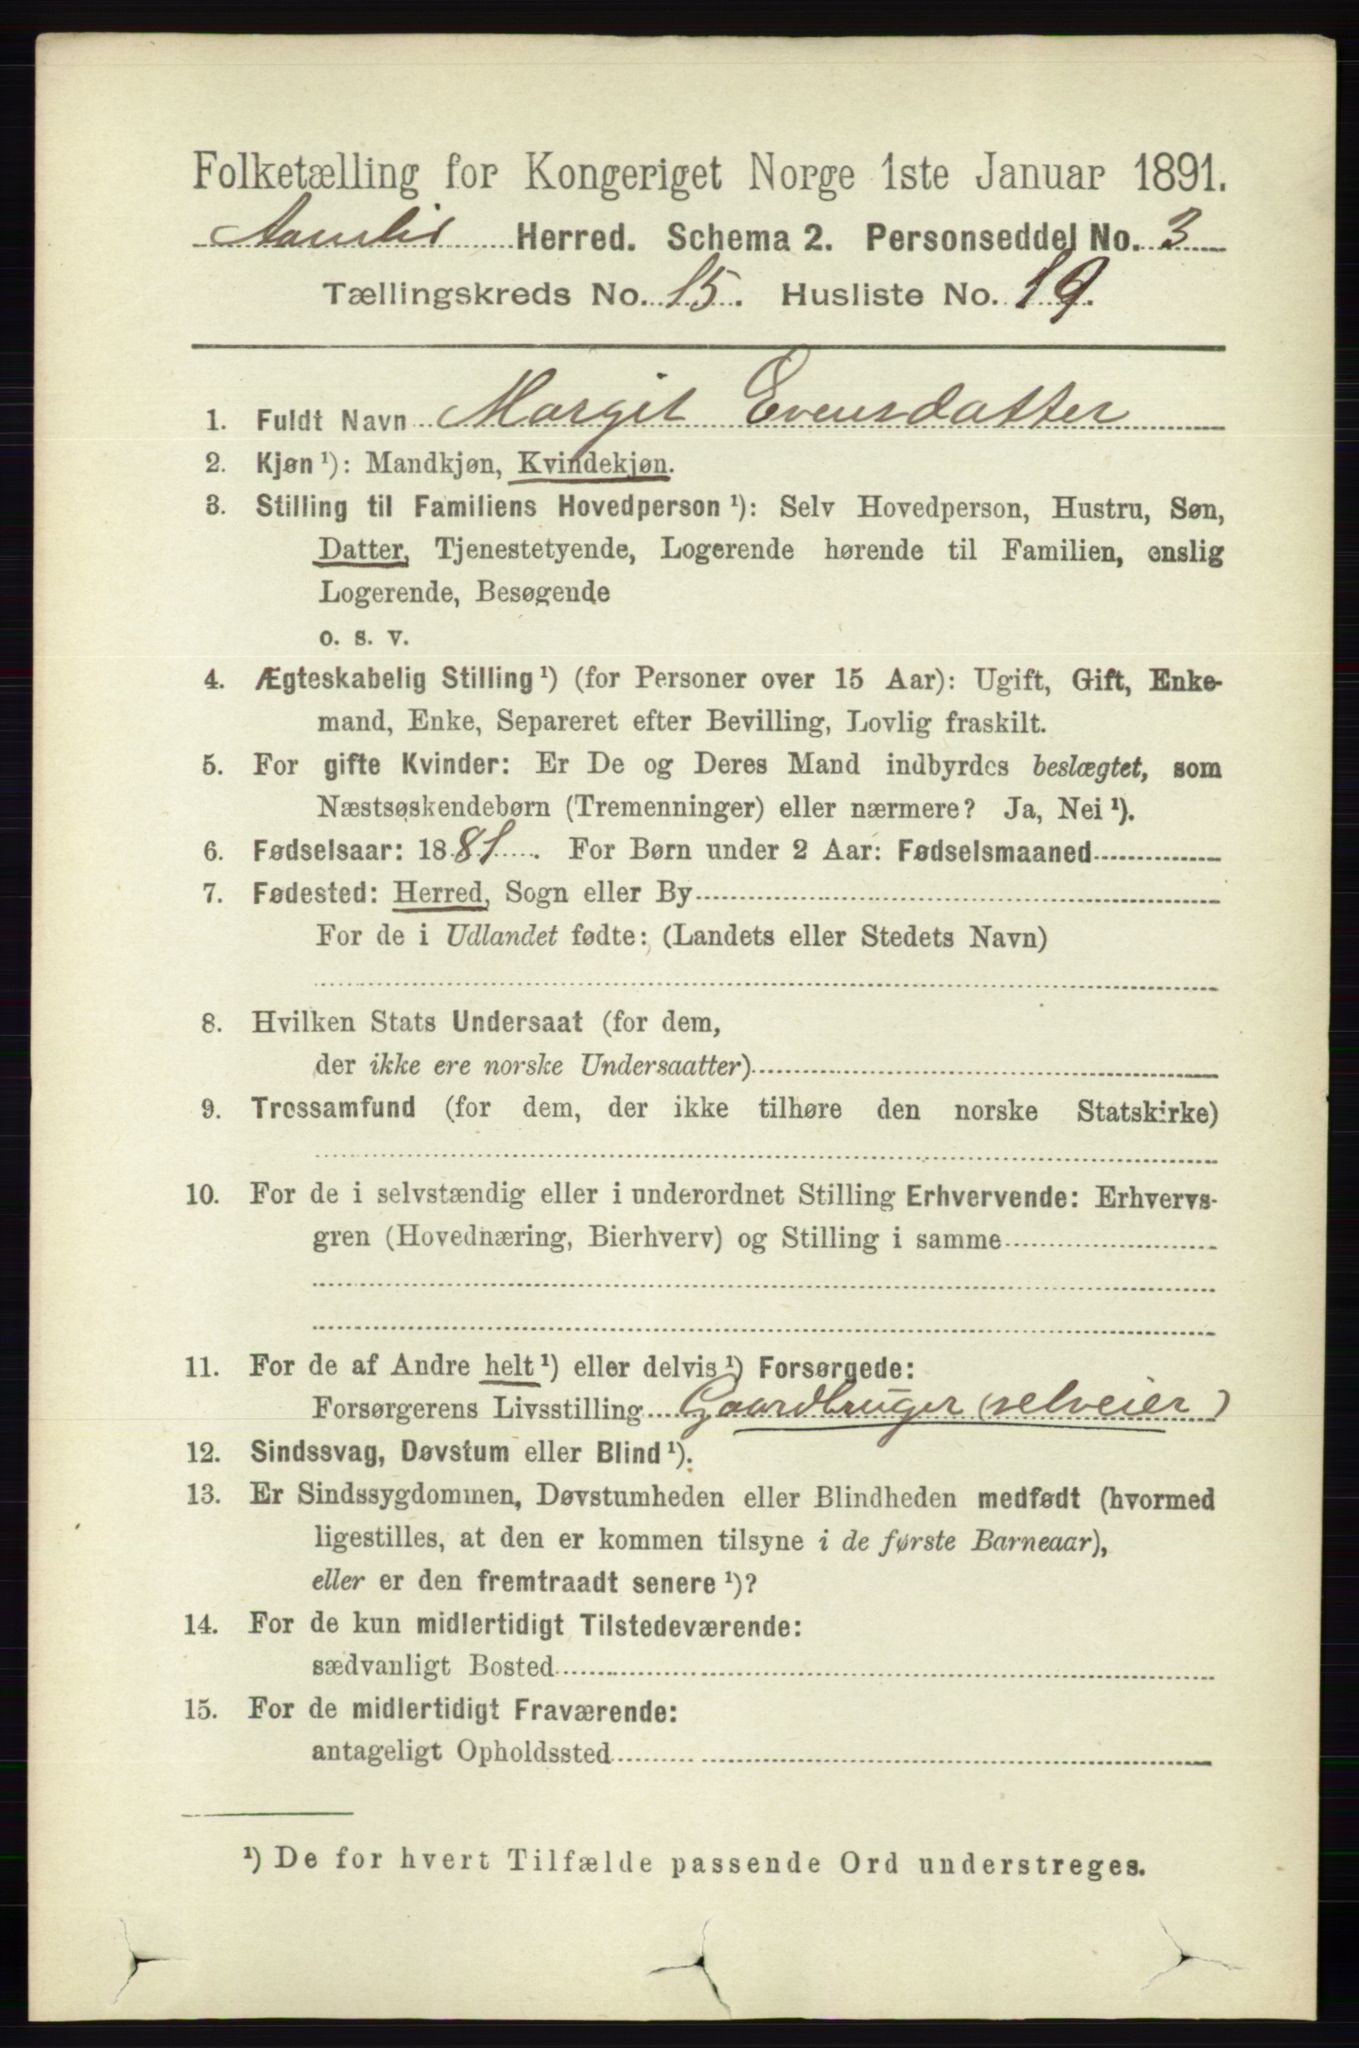 Folketælling for Kongeriget Norge 1ste Januar 1891.
Aamlid Herred. Schema 2. Personseddel No. 3
Tællingskreds No. 15. Husliste No. 19.
1. Fuldt Navn Margit Evensdatter
2. Kjøn ¹): Mandkjøn, Kvindekjøn.
3. Stilling til Familiens Hovedperson ¹): Selv Hovedperson, Hustru, Søn,
Datter, Tjenestetyende, Logerende hørende til Familien, enslig
Logerende, Besøgende
o. s. v.
4. Ægteskabelig Stilling ¹) (for Personer over 15 Aar): Ugift, Gift, Enke-
mand, Enke, Separeret efter Bevilling, Lovlig fraskilt.
5. For gifte Kvinder: Er De og Deres Mand indbyrdes beslægtet, som
Næstsøskendebørn (Tremenninger) eller nærmere? Ja, Nei ¹).
6. Fødselsaar: 1881. For Børn under 2 Aar: Fødselsmaaned
7. Fødested: Herred, Sogn eller By
For de i Udlandet fødte: (Landets eller Stedets Navn)
8. Hvilken Stats Undersaat (for dem,
der ikke ere norske Undersaatter)
9. Trossamfund (for dem, der ikke tilhøre den norske Statskirke)
10. For de i selvstændig eller i underordnet Stilling Erhvervende: Erhvervs-
gren (Hovednæring, Bierhverv) og Stilling i samme
11. For de af Andre helt ¹) eller delvis ¹) Forsørgede:
Forsørgerens Livsstilling Gaardbruger (selveier)
12. Sindssvag, Døvstum eller Blind ¹).
13. Er Sindssygdommen, Døvstumheden eller Blindheden medfødt (hvormed
ligestilles, at den er kommen tilsyne i de første Barneaar),
eller er den fremtraadt senere ¹)?
14. For de kun midlertidigt Tilstedeværende:
sædvanligt Bosted
15. For de midlertidigt Fraværende:
antageligt Opholdssted
¹) De for hvert Tilfælde passende Ord understreges.